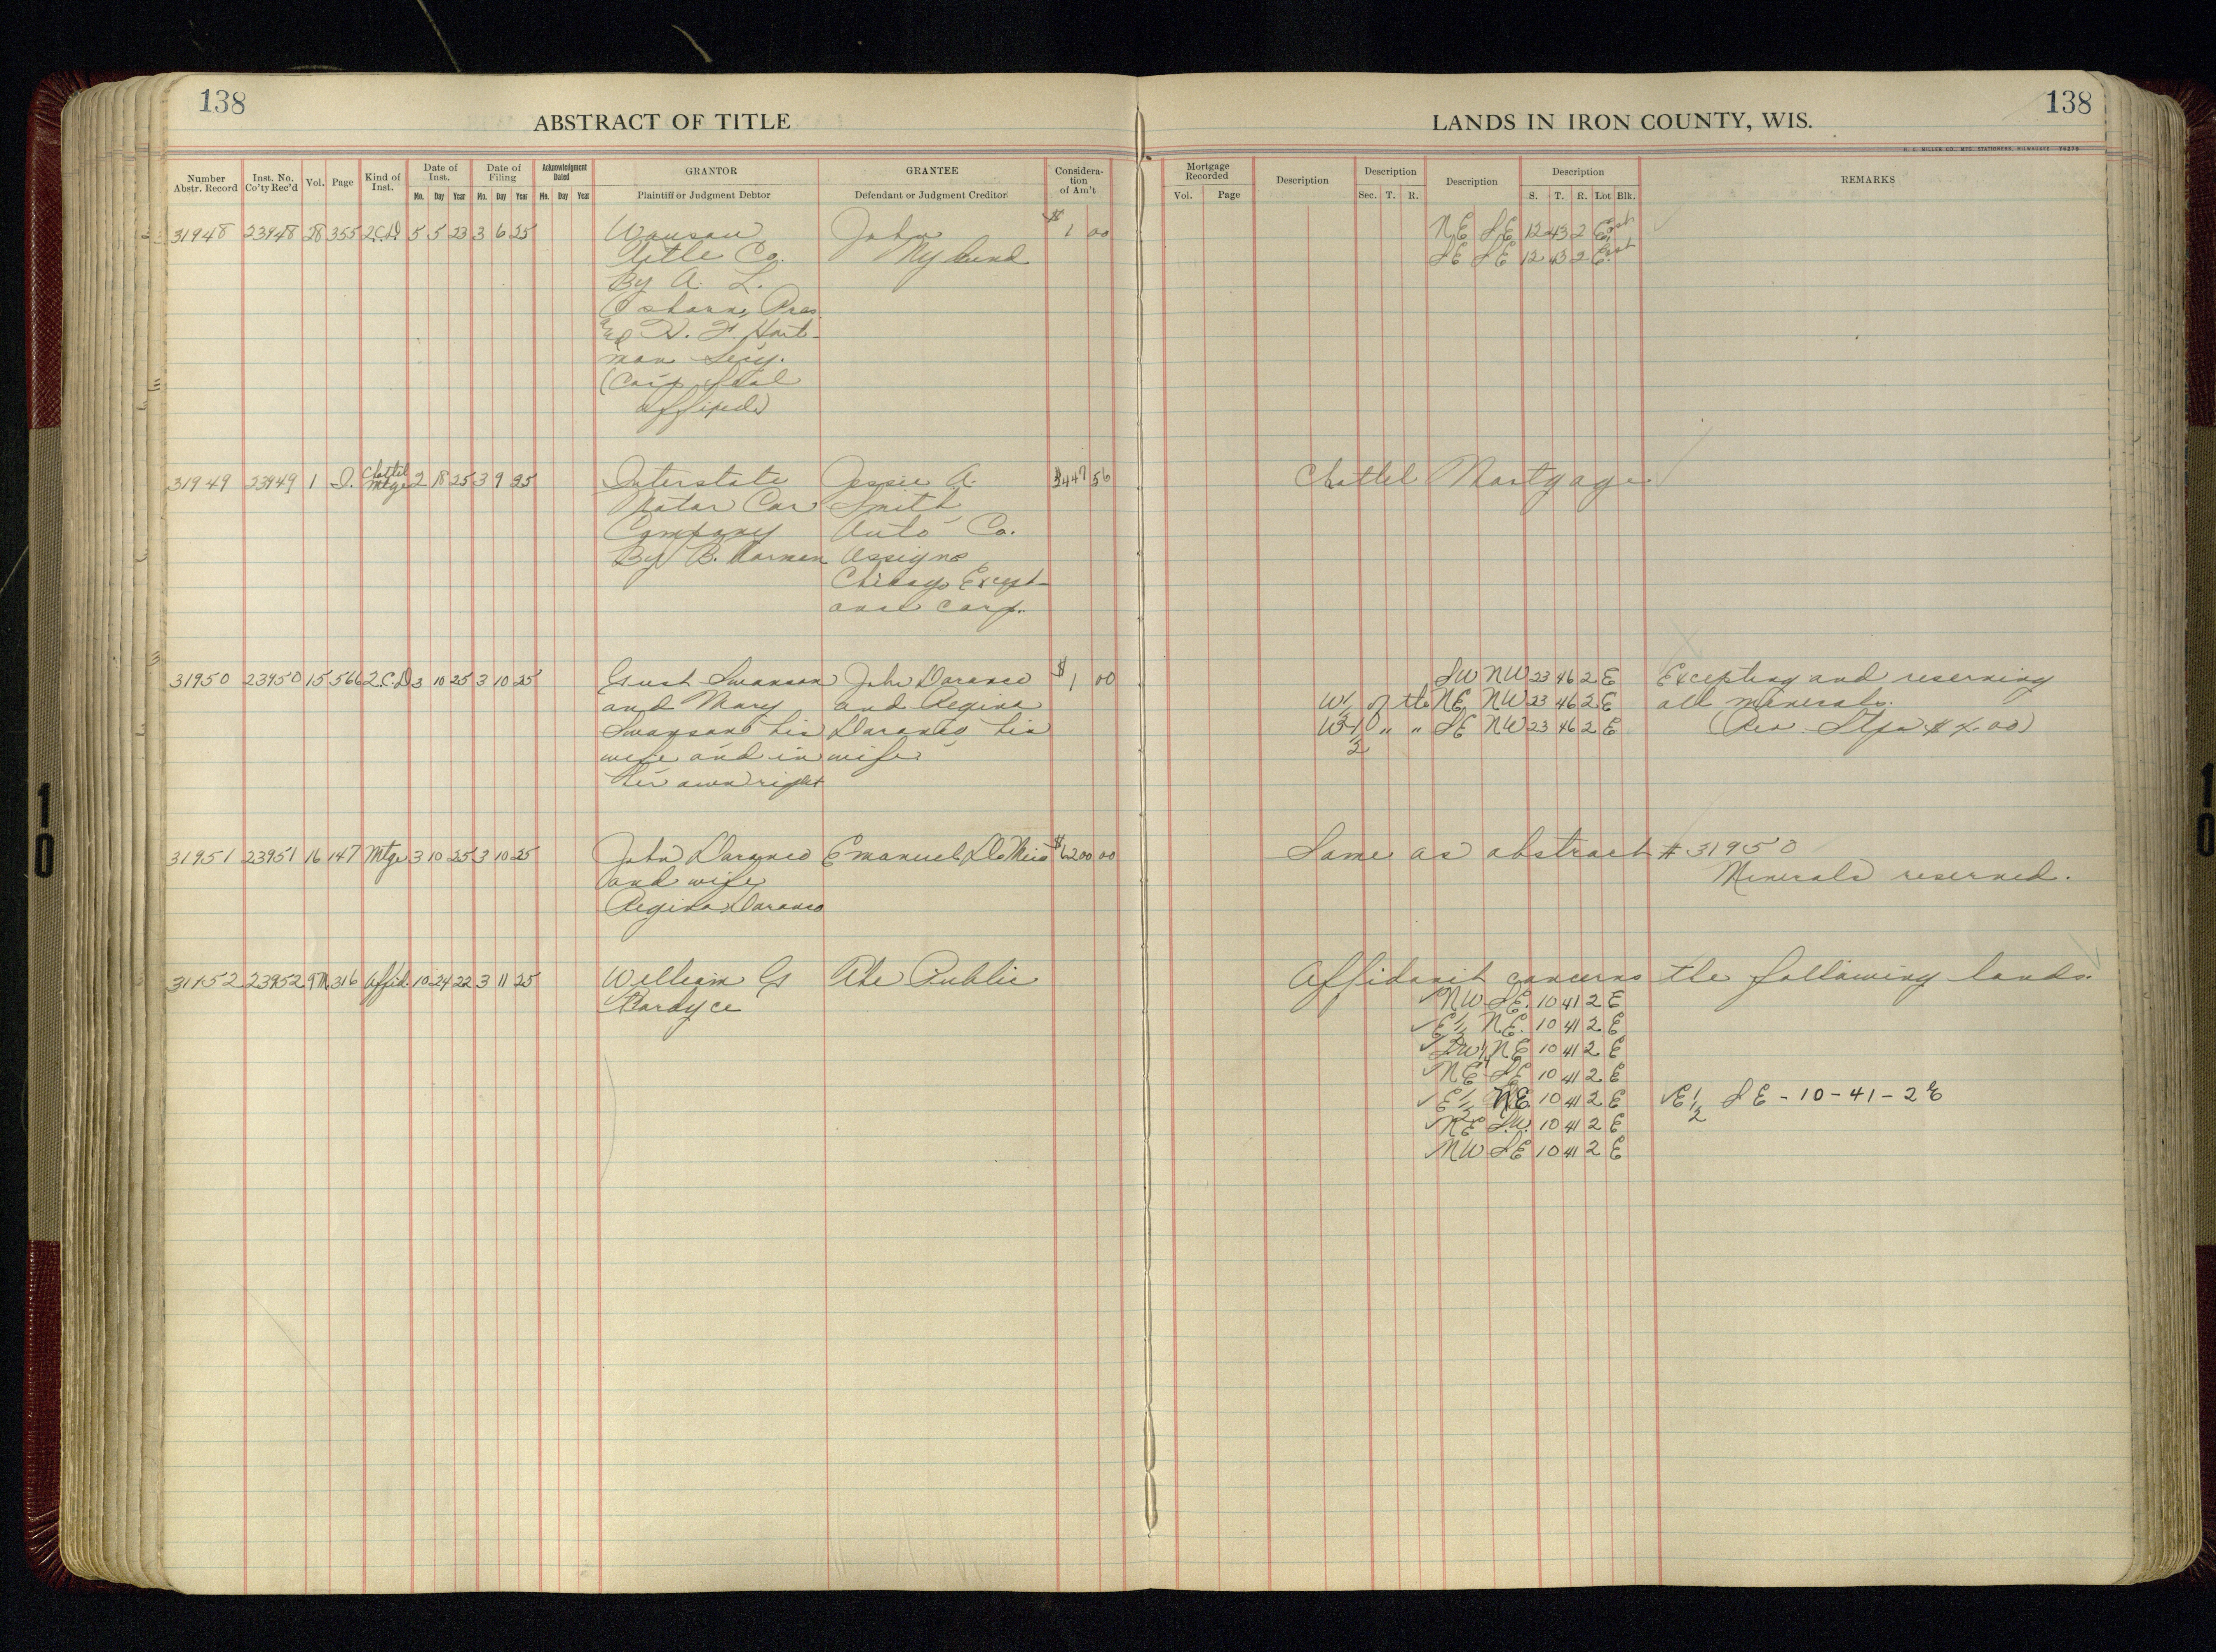 138
ABSTRACT OF TITLE
LANDS IN IRON COUNTY, WIS.
138
H. C. MILLER CO., MFG. STATIONERS, MILWAUKEE 76276
Number Abstr. Record
Inst. No. Co'ty Rec'd
Vol.
Page
Kind of Inst.
Date of Inst.
Mo. Day Year
Date of Filing
Mo. Day Year
Acknowledgment Dated
Mo. Day Year
GRANTOR
Plaintiff or Judgment Debtor
GRANTEE
Defendant or Judgment Creditor
Consideration of Am't
Mortgage Recorded
Vol. Page
Description
Description
Sec. T. R.
Description
Description
S. T. R. Lot Blk.
REMARKS
31948 23948 28 355 2.C.D 5 5 23 3 6 25 Wausau John $1 00 NE SE 12 43 2 East
Title Co. Nylund SE SE 12 43 2 East
By A. L.
Osborn, Pres.
and H. F. Hart-
man Secy.
(Corp Seal
affixed)
31949 23949 1 I. Chattel Mtge 2 18 25 3 9 25 Interstate Jessie A. $447 56 Chattel Mortgage
Motor Car Smith
Company Auto Co.
By B. Assigns
Chicago Except-
ance Corp.
31950 23950 15 566 2.C.D 3 10 25 3 10 25 Gust Swanson John Daranco $1 00 SW NW 23 46 2 E Excepting and reserving
and Mary and Regina W 1/2 of the NE NW 23 46 2 E all minerals.
Swanson his Daranco his W 1/2 " " SE NW 23 46 2 E (Rev. Stps
wife and in wife
her own right
31951 23951 16 147 Mtge 3 10 25 3 10 25 John Daranco Emanuel $6200 00 Same as abstract # 31950
and wife Minerals reserved.
Regina Daranco
31952 23952 9M 316 Affid. 10 24 22 3 11 25 William G The Public Affidavit concerns the following lands.
Fordyce NW SE. 10 41 2 E
E 1/2 NE. 10 41 2 E
SW NE 10 41 2 E
NE SE 10 41 2 E
E 1/2 NE 10 41 2 E E 1/2 SE - 10 - 41 - 2 E
NE S.W. 10 41 2 E
NW SE 10 41 2 E
10
10